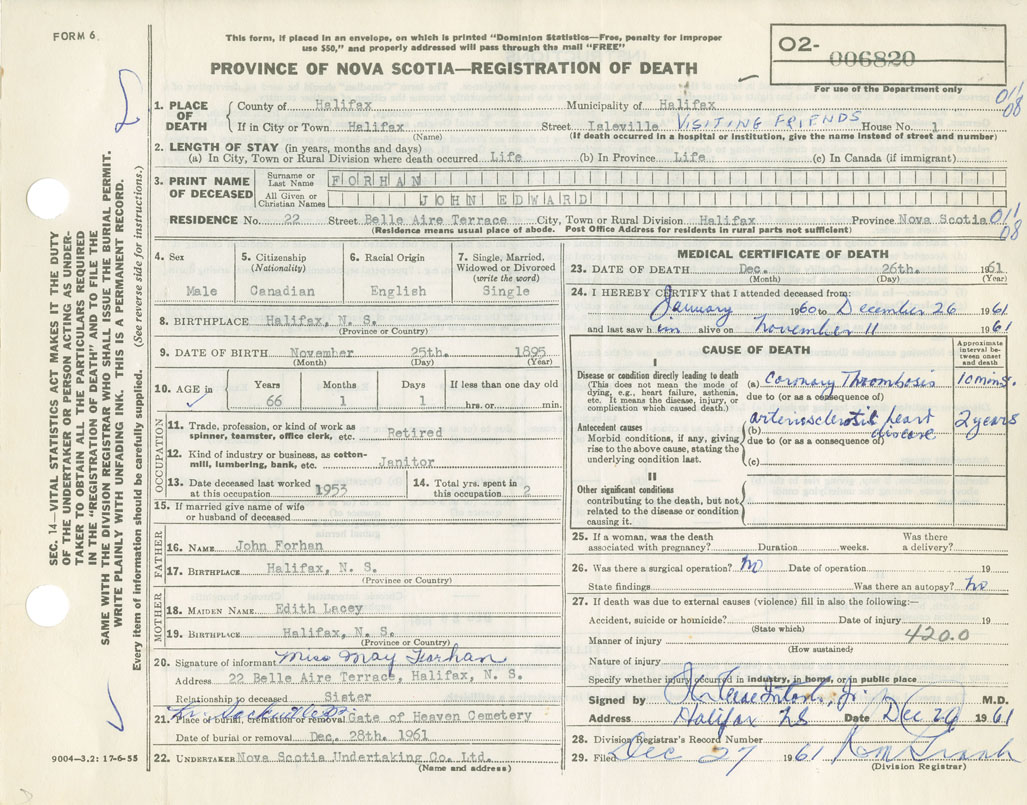 FORM 6
This form, if placed in an envelope, on which is printed "Dominion Statistics—Free, penalty for improper
use $50," and properly addressed will pass through the mail "FREE"
PROVINCE OF NOVA SCOTIA—REGISTRATION OF DEATH
O2- 006820
For use of the Department only
SEC. 14—VITAL STATISTICS ACT MAKES IT THE DUTY
OF THE UNDERTAKER OR PERSON ACTING AS UNDER-
TAKER TO OBTAIN ALL THE PARTICULARS REQUIRED
IN THE "REGISTRATION OF DEATH" AND TO FILE THE
SAME WITH THE DIVISION REGISTRAR WHO SHALL ISSUE THE BURIAL PERMIT.
WRITE PLAINLY WITH UNFADING INK. THIS IS A PERMANENT RECORD.
Every item of information should be carefully supplied. (See reverse side for instructions.)
1. PLACE OF DEATH County of Halifax Municipality of Halifax 01/08
If in City or Town Halifax Street Isleville VISITING FRIENDS House No. 1
(Name) (If death occurred in a hospital or institution, give the name instead of street and number)
2. LENGTH OF STAY (in years, months and days)
(a) In City, Town or Rural Division where death occurred Life (b) In Province Life (c) In Canada (if immigrant)
3. PRINT NAME OF DECEASED Surname or Last Name FORHAN
All Given or Christian Names JOHN EDWARD
RESIDENCE No. 22 Street Belle Aire Terrace City, Town or Rural Division Halifax Province Nova Scotia 01/08
(Residence means usual place of abode. Post Office Address for residents in rural parts not sufficient)
4. Sex 5. Citizenship (Nationality) 6. Racial Origin 7. Single, Married, Widowed or Divorced (write the word)
Male Canadian English Single
8. BIRTHPLACE Halifax, N. S.
(Province or Country)
9. DATE OF BIRTH November 25th. 1895
(Month) (Day) (Year)
10. AGE in Years Months Days If less than one day old
66 1 1 hrs. or min.
OCCUPATION
11. Trade, profession or kind of work as
spinner, teamster, office clerk, etc. Retired
12. Kind of industry or business, as cotton-
mill, lumbering, bank, etc. Janitor
13. Date deceased last worked at this occupation 1953 14. Total yrs. spent in this occupation 2
15. If married give name of wife
or husband of deceased
FATHER
16. NAME John Forhan
17. BIRTHPLACE Halifax, N. S.
(Province or Country)
MOTHER
18. MAIDEN NAME Edith Lacey
19. BIRTHPLACE Halifax, N. S.
(Province or Country)
20. Signature of informant Miss May Forhan
Address 22 Belle Aire Terrace, Halifax, N. S.
Relationship to deceased Sister
21. Place of burial, cremation or removal Gate of Heaven Cemetery
Date of burial or removal Dec. 28th. 1961
22. UNDERTAKER Nova Scotia Undertaking Co. Ltd.
(Name and address)
9004—3,2: 17-6-55
MEDICAL CERTIFICATE OF DEATH
23. DATE OF DEATH Dec. 26th. 1961
(Month) (Day) (Year)
24. I HEREBY CERTIFY that I attended deceased from:
January 1960 to December 26 1961
and last saw him alive on November 11 1961
CAUSE OF DEATH
Approximate interval between onset and death
I
Disease or condition directly leading to death
(This does not mean the mode of
dying, e.g., heart failure, asthenia,
etc. It means the disease, injury, or
complication which caused death.)
(a) Coronary Thrombosis 10 mins.
due to (or as a consequence of)
Antecedent causes
Morbid conditions, if any, giving
rise to the above cause, stating the
underlying condition last.
(b) arteriosclerotic heart disease 2 years
due to (or as a consequence of)
(c)
II
Other significant conditions
contributing to the death, but not
related to the disease or condition
causing it.
25. If a woman, was the death
associated with pregnancy? Duration weeks. Was there a delivery?
26. Was there a surgical operation? No Date of operation 19
State findings Was there an autopsy? No
27. If death was due to external causes (violence) fill in also the following:—
Accident, suicide or homicide? Date of injury 19
(State which)
Manner of injury 420.0
(How sustained)
Nature of injury
Specify whether injury occurred in industry, in home, or in public place
Signed by M.D.
Address Halifax NS Date Dec 26 1961
28. Division Registrar's Record Number
29. Filed Dec 27 1961
(Division Registrar)